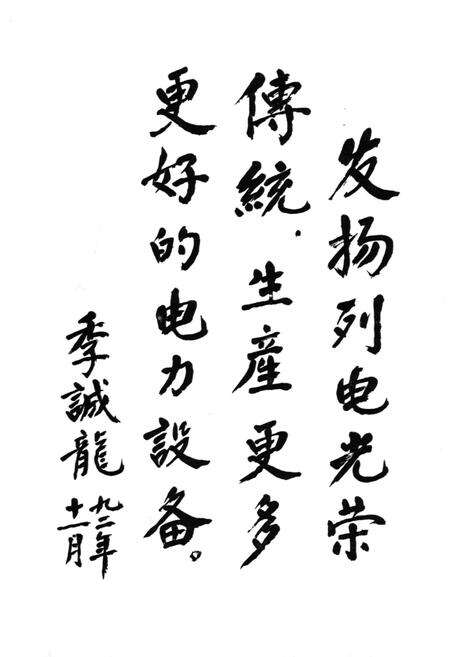 发扬列电光荣
傳統.生産更多
更好的电力設备。
季誠龍
九二年
十一月